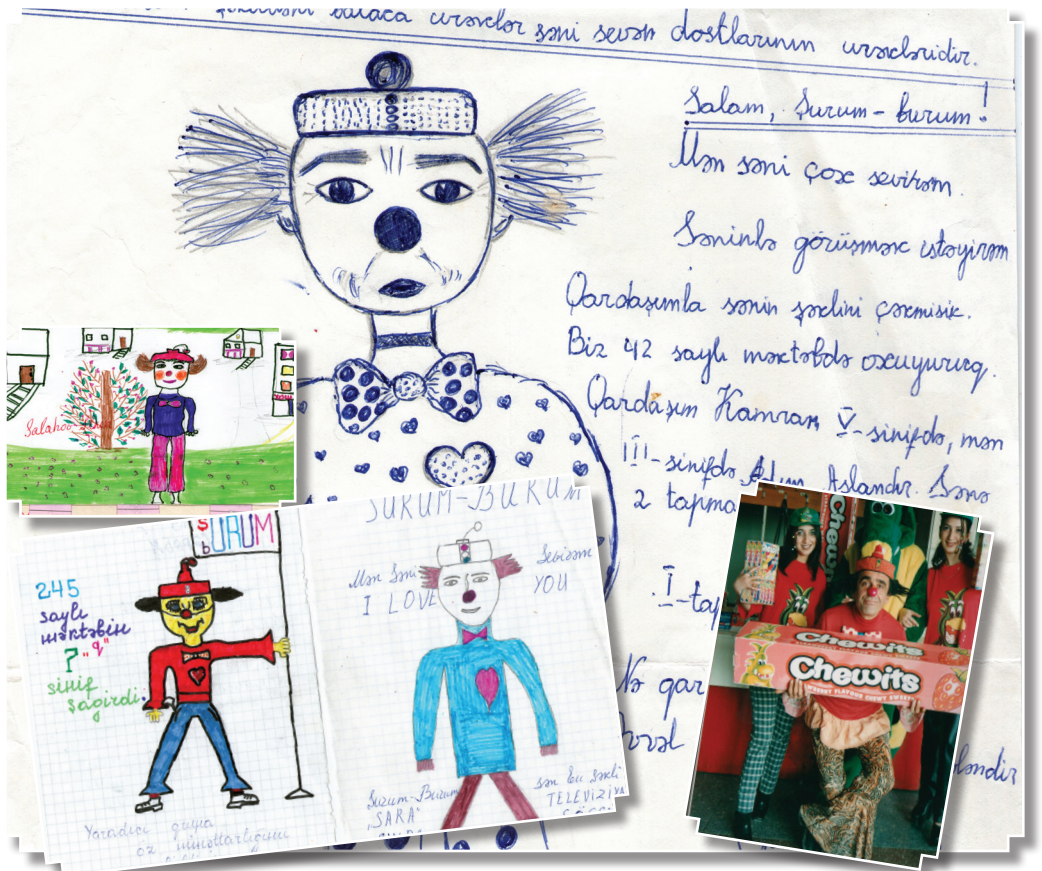 balaca ürəklər səni sevən dostlarının ürəkləridir.
Salam, Şurum-burum!
Mən səni çox sevirəm.
Səninlə görüşmək istəyirəm
Qardaşımla sənin şəklini çəkmişik.
Biz 42 saylı məktəbdə oxuyuruq.
Qardaşım Kamran V-sinifdə, mən
III-sinifdə. Adım Aslandır. Sənə
2 tapma
I-tap
Nə qar
ləndir
ŞURUM
b
245
saylı
məktəbin
7 "q"
sinif
şagirdi
Yaradıcı qrupa
öz minnətdarlığımı
ŞURUM-BURUM
Mən Səni
I LOVE
Sevirəm
YOU
Şurum-Burum
"SARA"
sən bu şəkli
TELEVİZİYA
Chewits
Chewits
Chewits